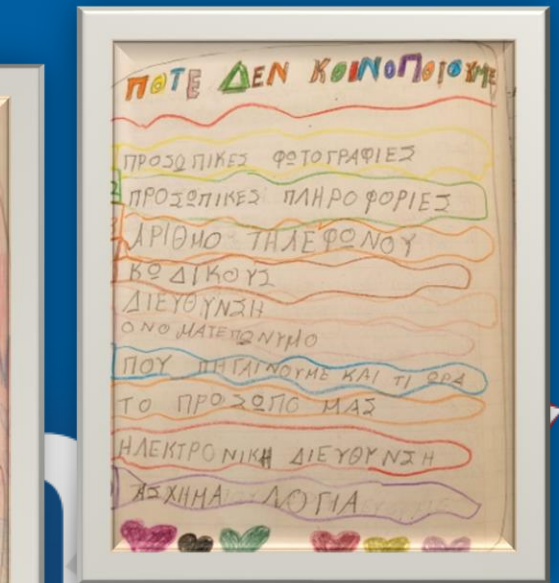 ΠΟΤΕ ΔΕΝ ΚΟΙΝΟΠΟΙΟΥΜΕ
ΠΡΟΣΩΠΙΚΕΣ ΦΩΤΟΓΡΑΦΙΕΣ
ΠΡΟΣΩΠΙΚΕΣ ΠΛΗΡΟΦΟΡΙΕΣ
ΑΡΙΘΜΟ ΤΗΛΕΦΩΝΟΥ
ΚΩΔΙΚΟΥΣ
ΔΙΕΥΘΥΝΣΗ
ΟΝΟΜΑΤΕΠΩΝΥΜΟ
ΠΟΥ ΠΗΓΑΙΝΟΥΜΕ ΚΑΙ ΤΙ ΩΡΑ
ΤΟ ΠΡΟΣΩΠΟ ΜΑΣ
ΗΛΕΚΤΡΟΝΙΚΗ ΔΙΕΥΘΥΝΣΗ
ΑΣΧΗΜΑ ΛΟΓΙΑ